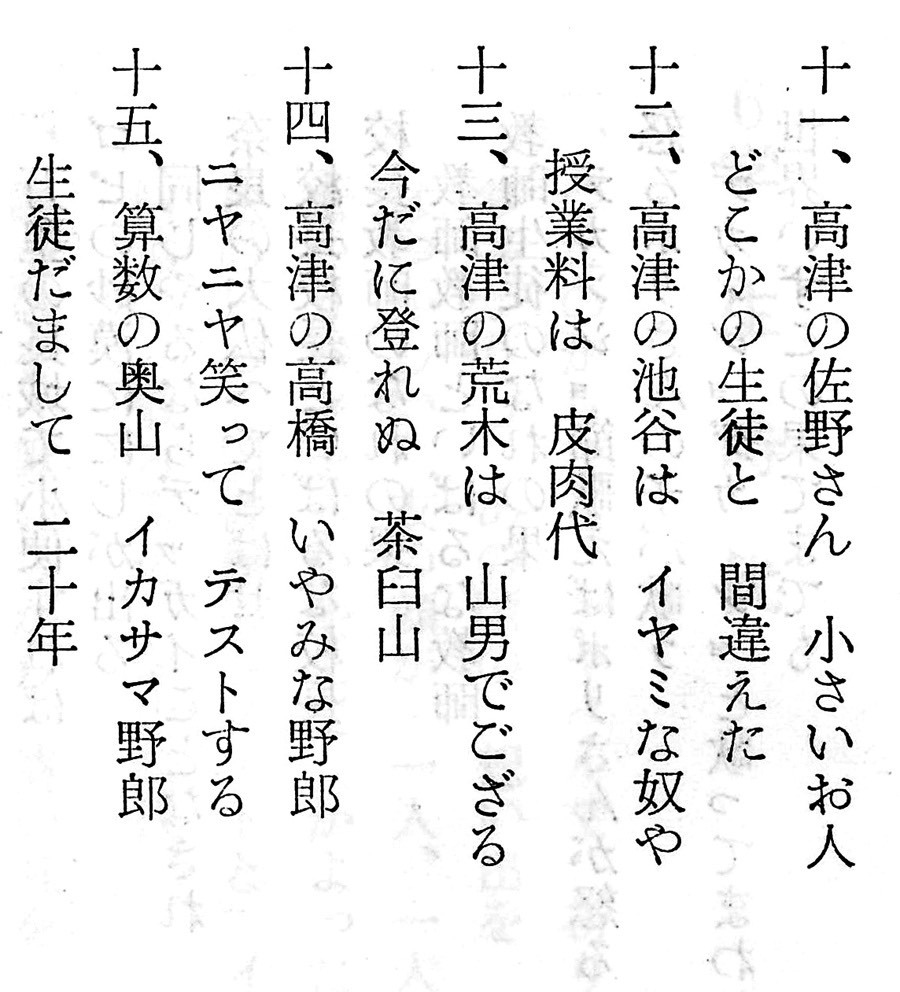 十一、高津の佐野さん　小さいお人
どこかの生徒と　間違えた
十二、高津の池谷は　イヤミな奴や
授業料は　皮肉代
十三、高津の荒木は　山男でござる
今だに登れぬ　茶臼山
十四、高津の高橋　いやみな野郎
ニヤニヤ笑って　テストする
十五、算数の奥山　イカサマ野郎
生徒だまして　二十年